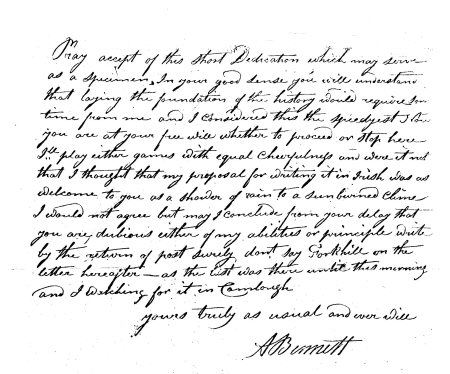 Pray accept of this Short Dedication which may serve
as a specimen. In your good sense you will understand
that laying the foundation of the history would require
time from me and I considered this the speedyest
you are at your free will whether to proceed or stop here
I'll play either games with equal Chearfulness and were it not
that I thought that my proposal for writing it in Irish was as
welcome to you as a shower of rain to a sunburned Clime
I would not agree but may I conclude from your delay that
you are dubious either of my abilities or principle write
by the return of post surely don't say Forkhill on the
letter hereafter — as the last was there until this morning
and I watching for it in Camlough
yours truly as usual and ever will
ABennett